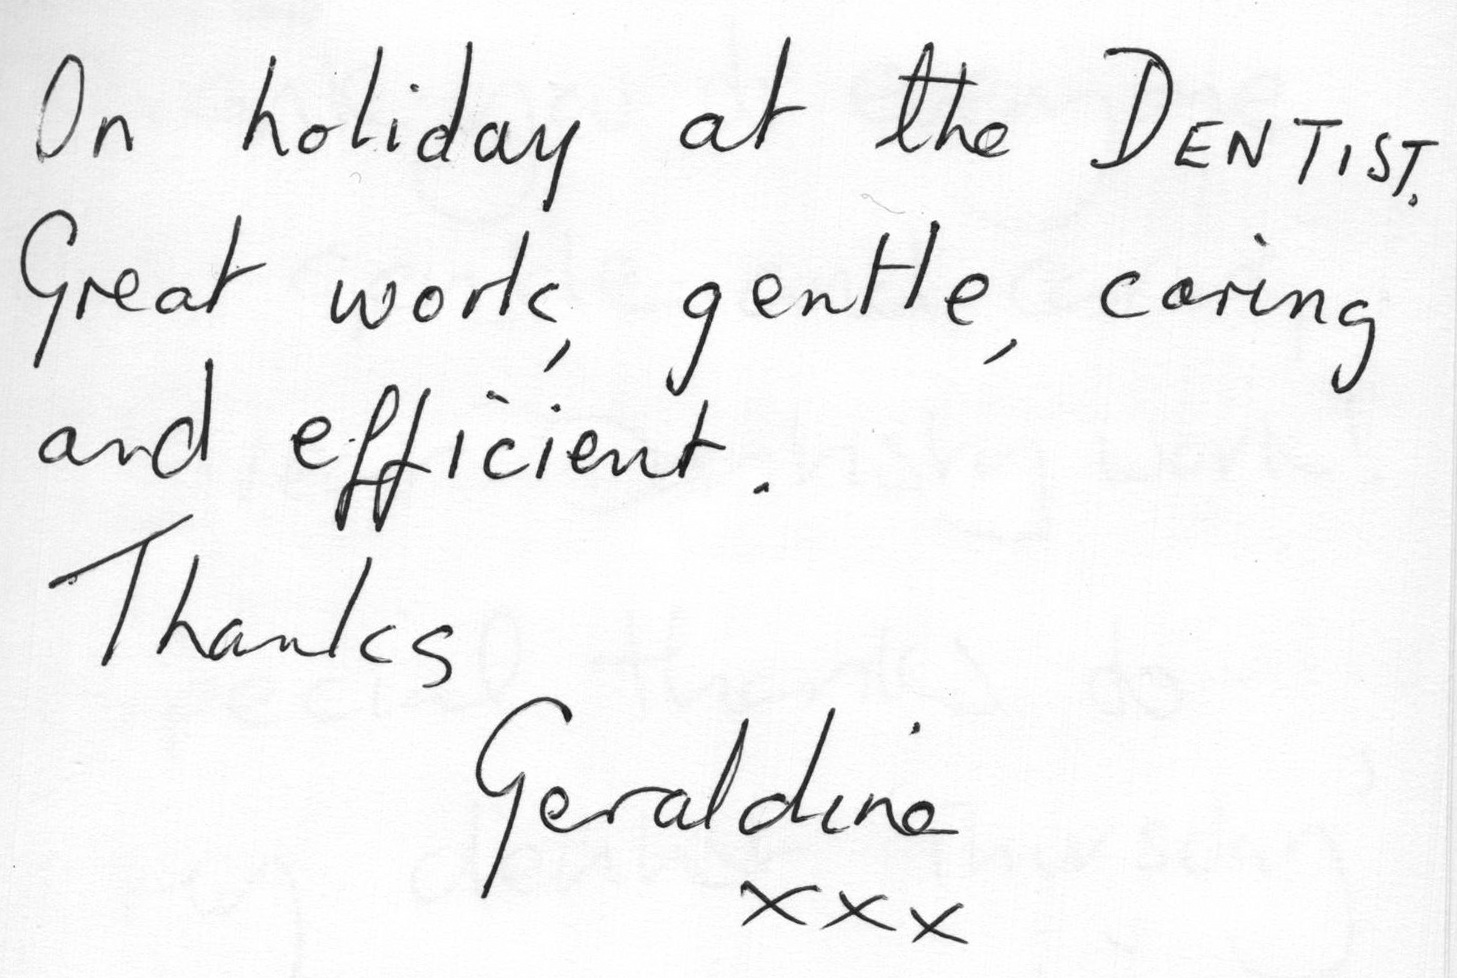 On holiday at the DENTIST.
Great work, gentle, caring
and efficient.
Thanks
Geraldine
xxx